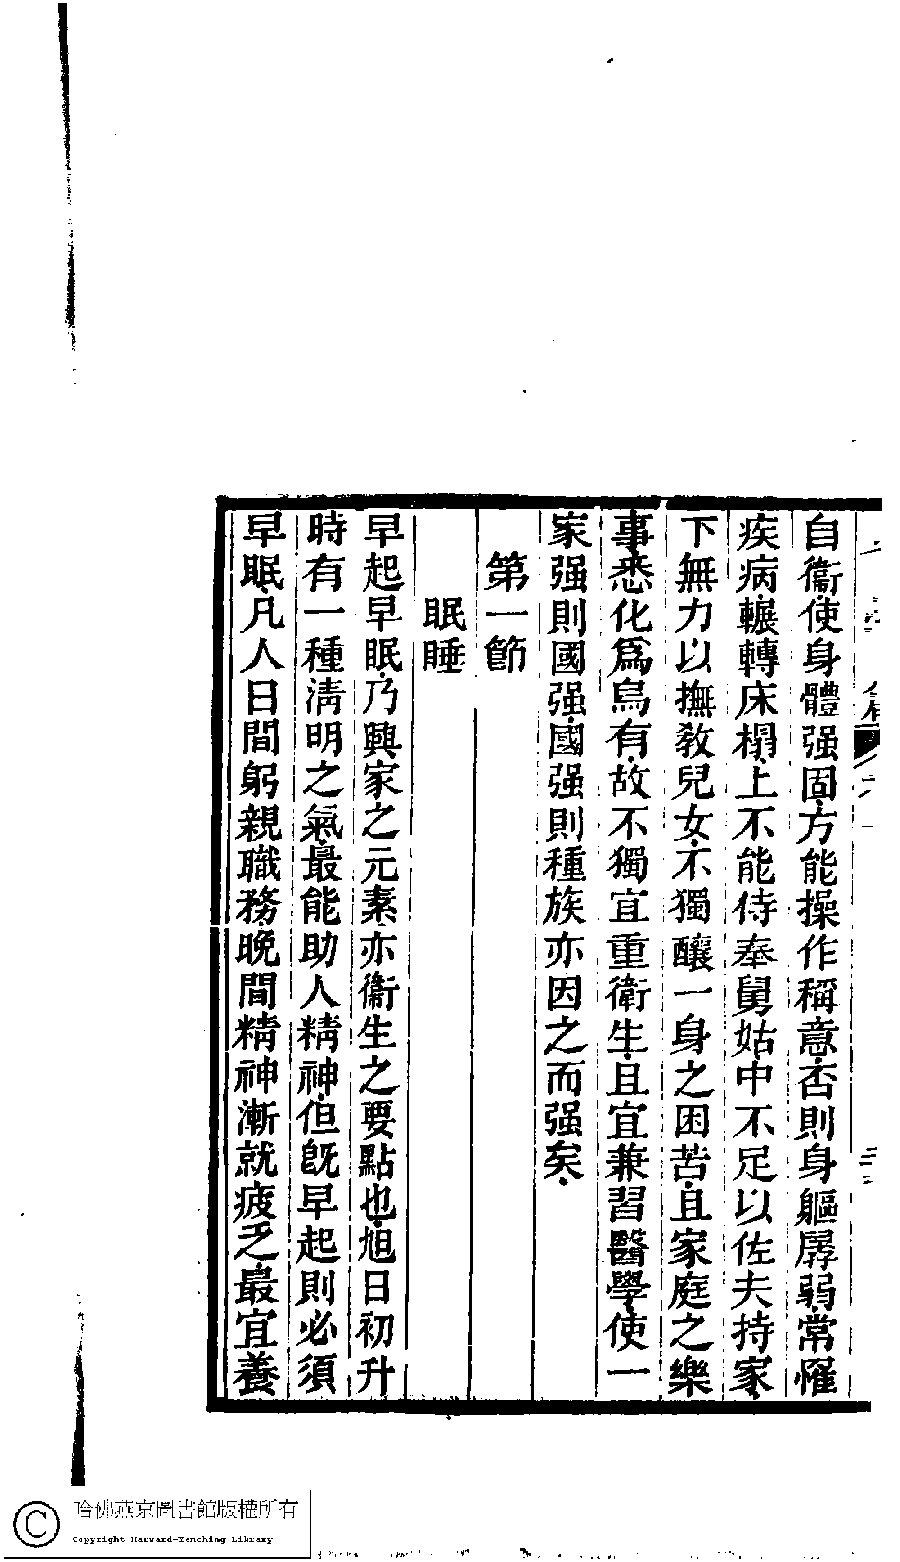 自衞使身體强固方能操作稱意否則身軀孱弱常罹
疾病輾轉床榻上不能侍奉舅姑中不足以佐夫持家
下無力以撫敎兒女不獨釀一身之困苦且家庭之樂
事悉化爲烏有故不獨宜重衛生且宜兼習醫學使一
家强則國强國强則種族亦因之而强矣
第一節
眠睡
早起早眠乃興家之元素亦衞生之要點也旭日初升
時有一種淸明之氣最能助人精神但旣早起則必須
早眠凡人日間躬親職務晚間精神漸就疲乏最宜養
哈佛燕京圖書館版權所有
Copyright Harvard-Yenching Library